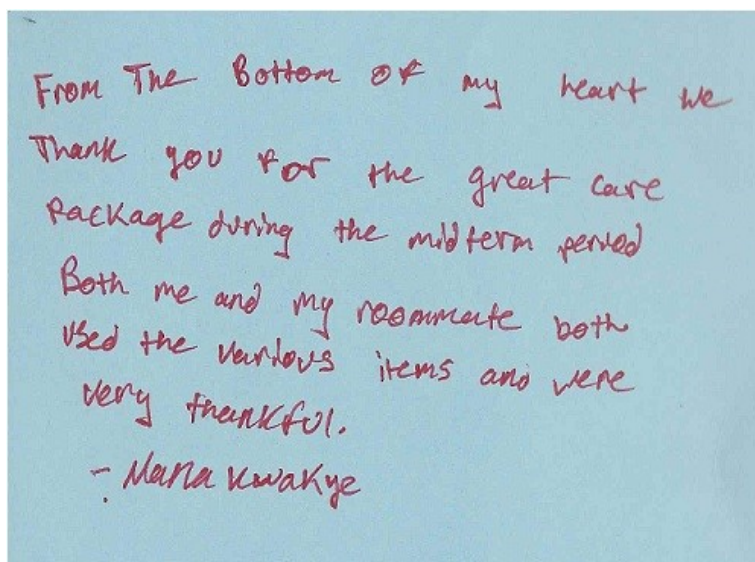 From The Bottom of my heart we
Thank you for the great care
Package during the midterm period
Both me and my roommate both
used the various items and were
very thankful.
- Nana Kwakye